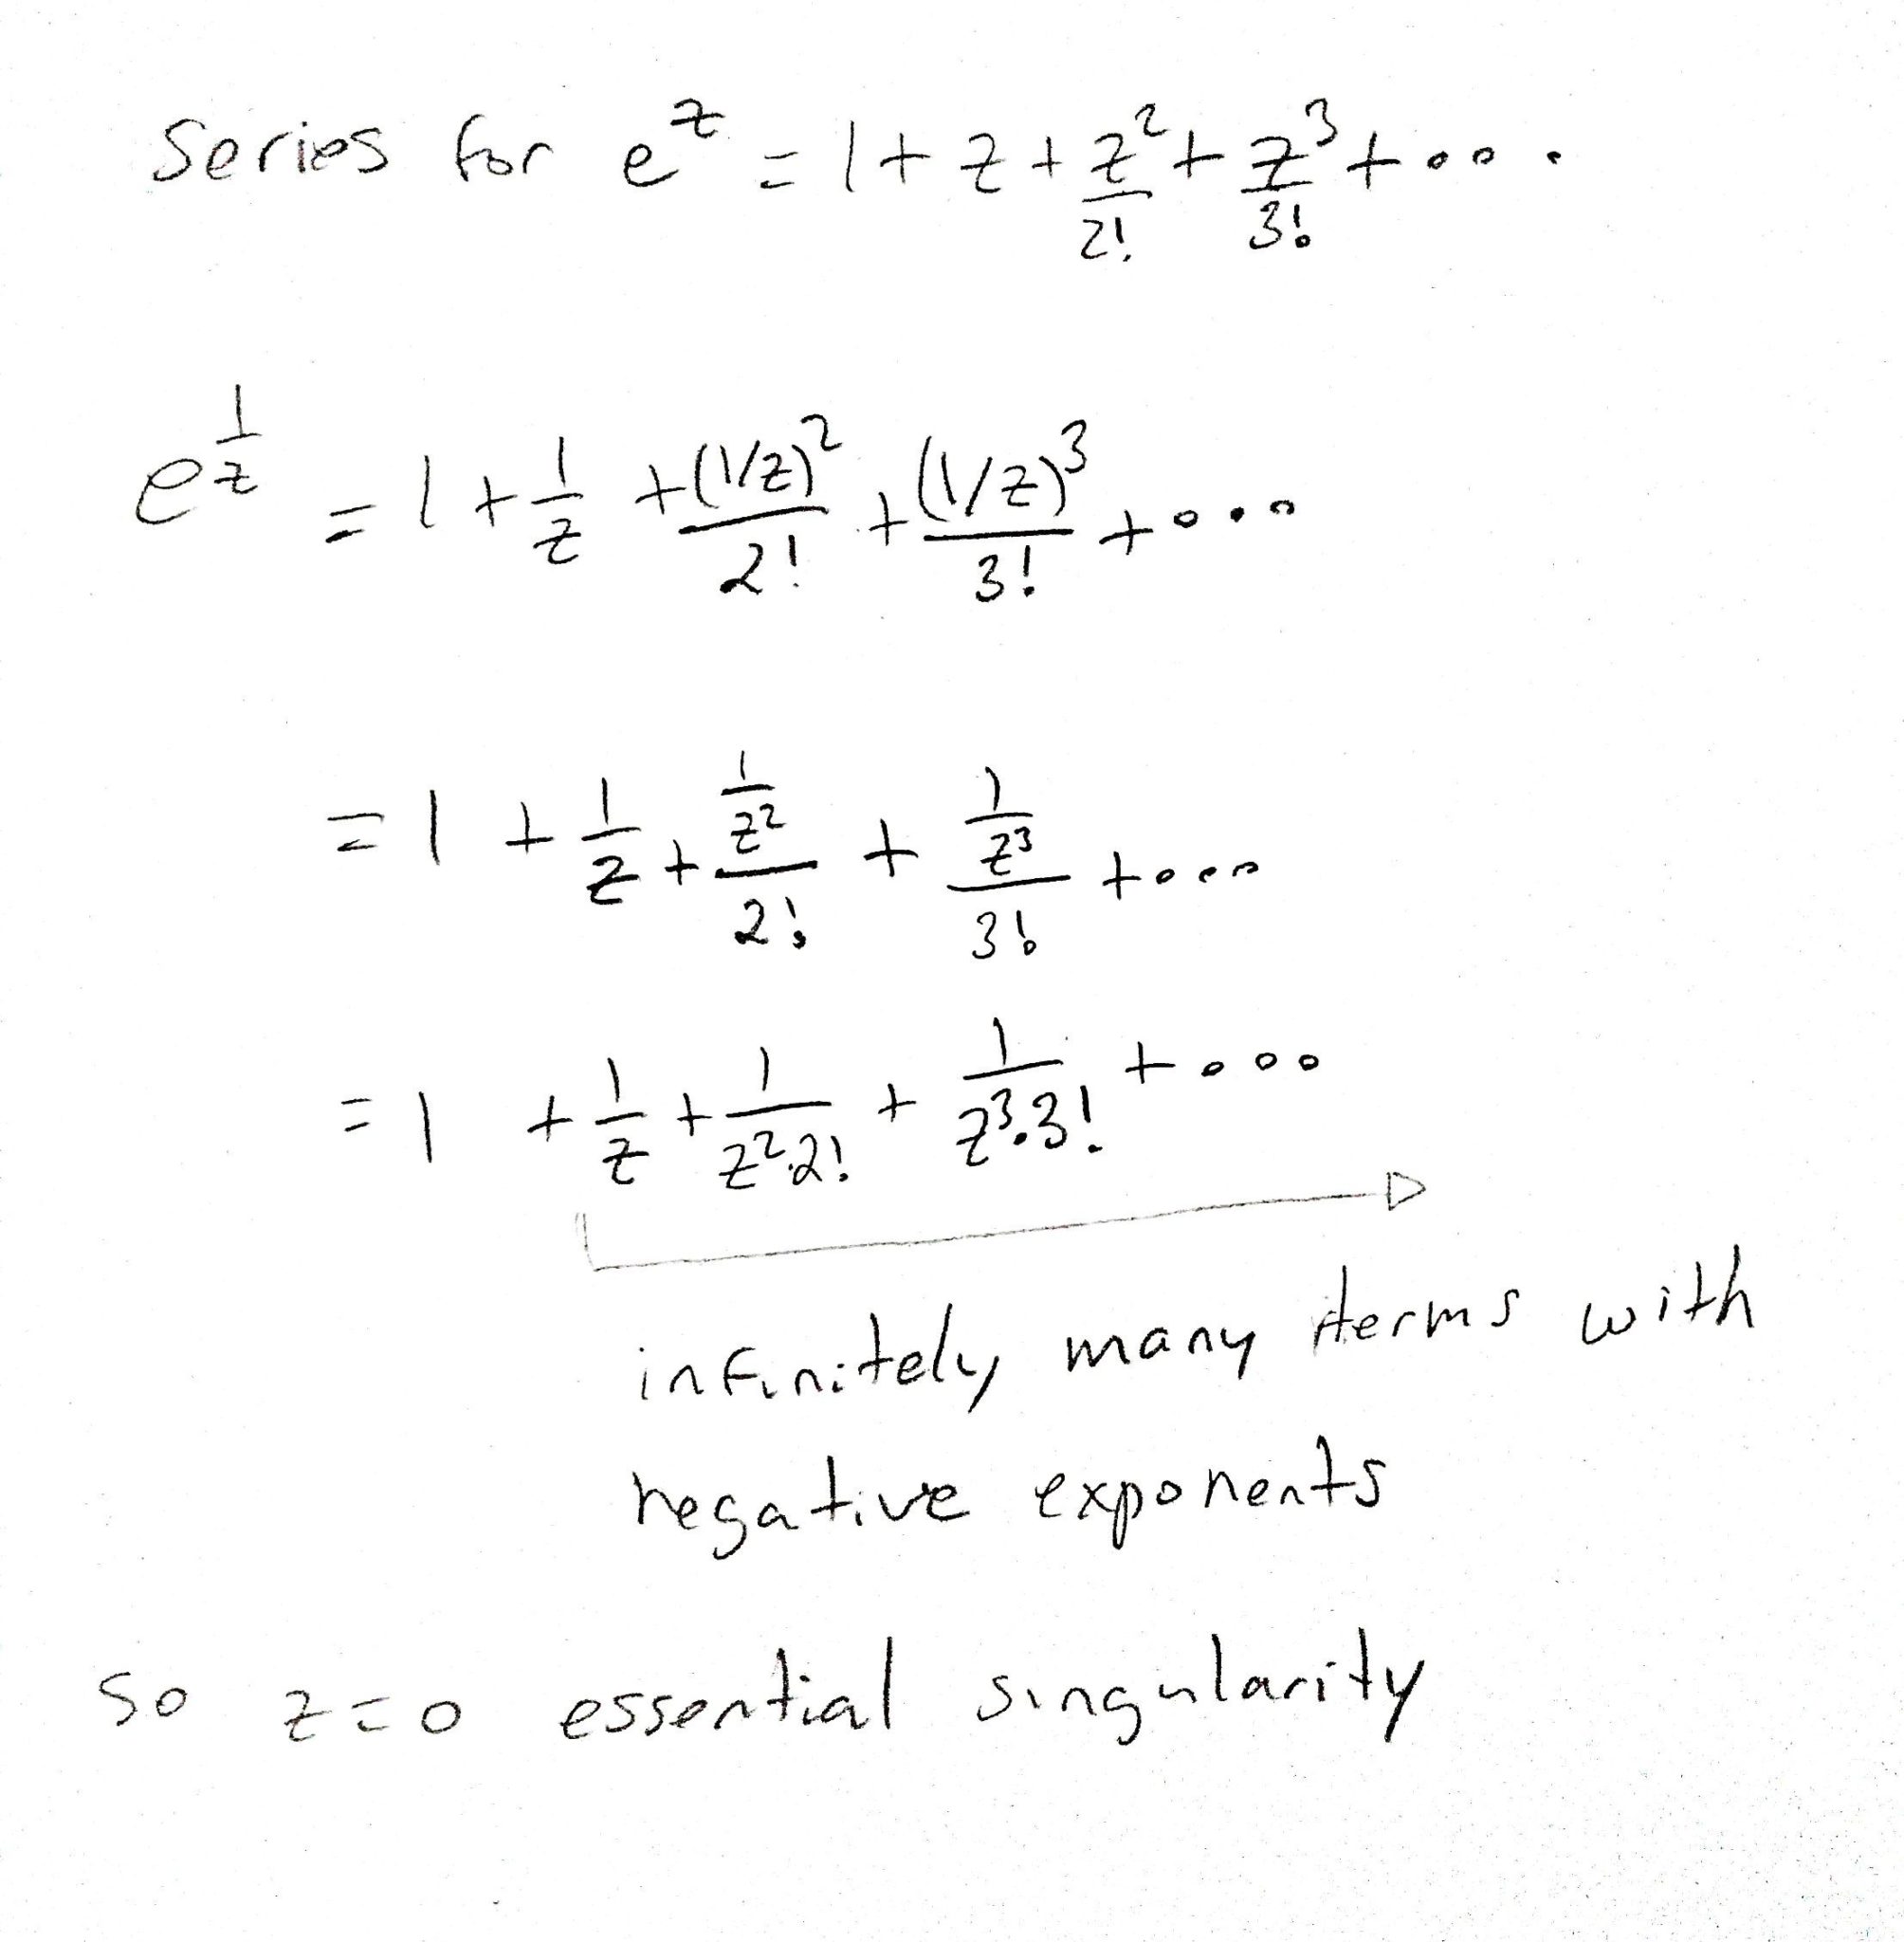 Series for e^z = 1 + z + z²/2! + z³/3! + ...
e^(1/z) = 1 + 1/z + (1/z)²/2! + (1/z)³/3! + ...
= 1 + 1/z + (1/z²)/2! + (1/z³)/3! + ...
= 1 + 1/z + 1/(z²·2!) + 1/(z³·3!) + ...
infinitely many terms with
negative exponents
so z=0 essential singularity